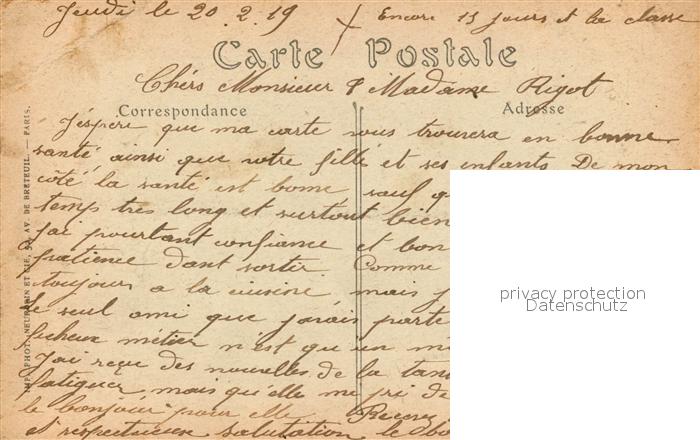 Jeudi le 20.2.19 Encore 15 jours et la classe
Carte Postale
Chérs Monsieur & Madame Rigot
Correspondance Adresse
J'éspère que ma carte vous trouvera en bonne
santé ainsi que votre fille et ses enfants. De mon
côté la santé est bonne sauf q
temps très long et surtout bien
J'ai pourtant confiance et bon
patience dant sortir Comme
toujours a la cuisine mais j
Le seul ami que j'avais parte
fucheux métier n'est qu'un m
J'ai reçue des nouvelles de la tan
fatiguer mais qu'elle me pri de
le bonjour pour elle Recev
et respectueuse salutation le bo
IMP. PHOT. NEURDEIN ET CIE, 52, AV. DE BRETEUIL. — PARIS.
privacy protection
Datenschutz